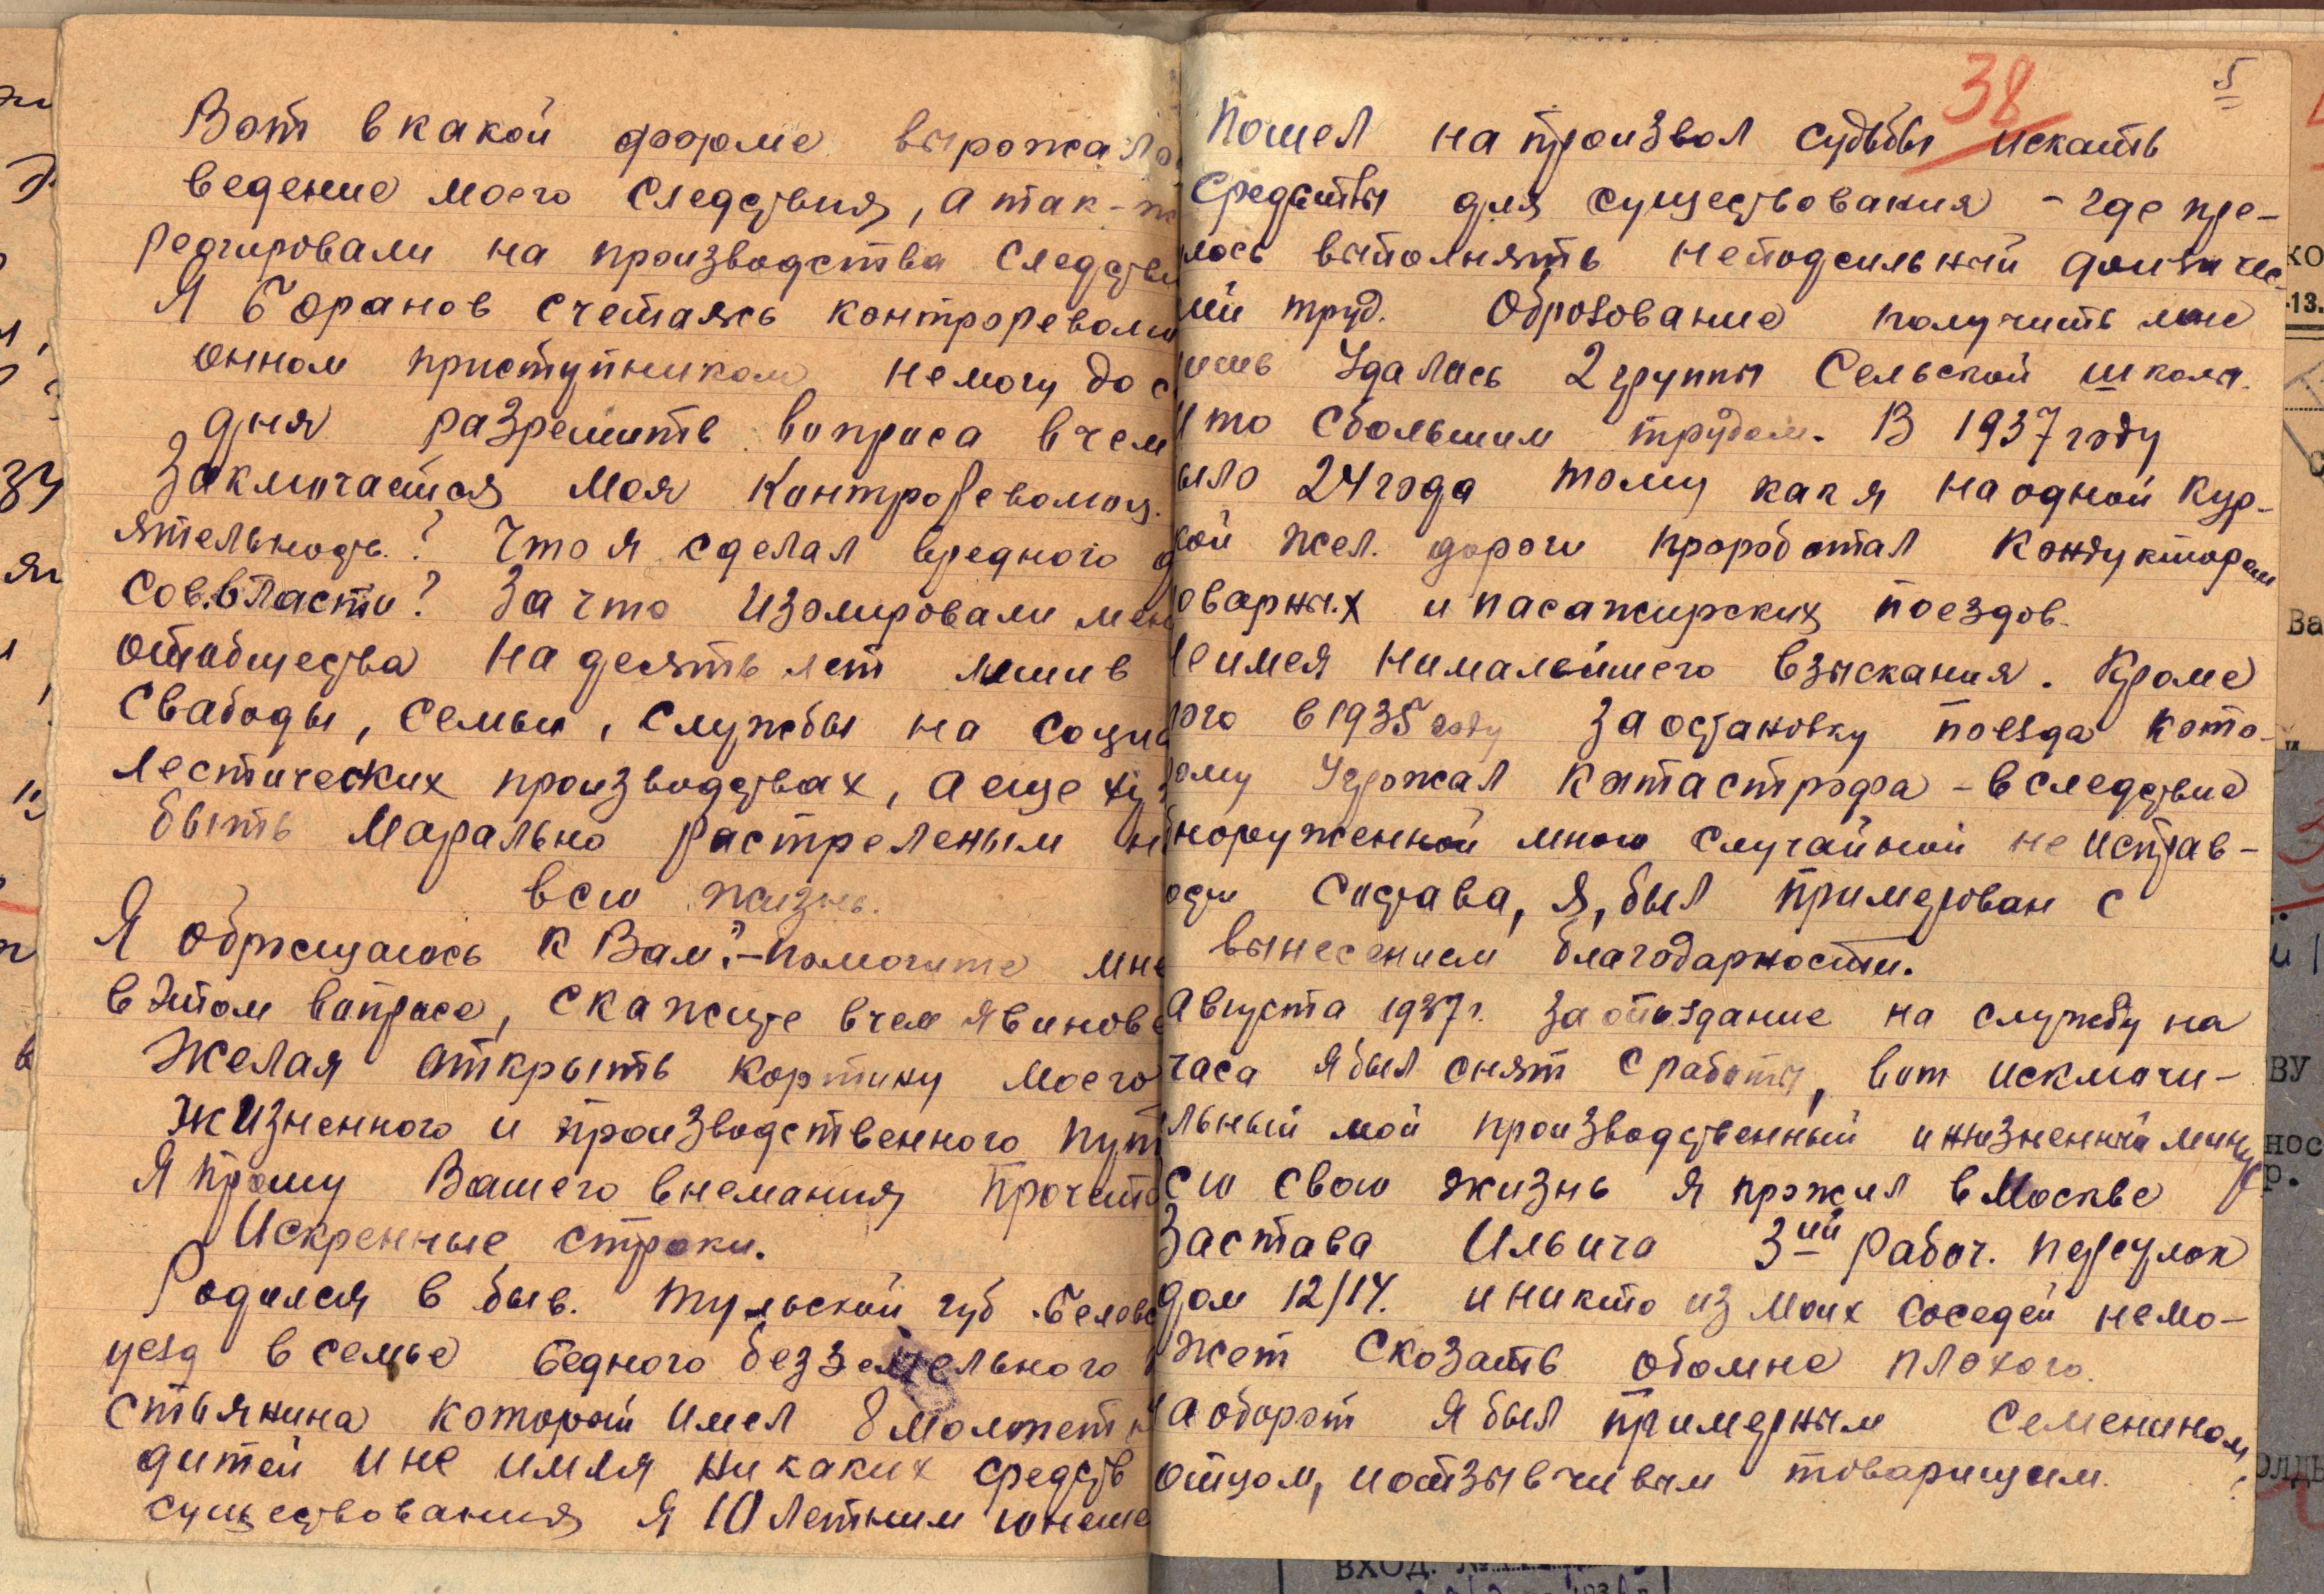 Вот в какой форме вырожало
ведение моего следствия, а так-ж
реагировали на производства следстви
Я Боранов счетаясь контрореволю
онном приступником немогу до с
дня разрешить вопроса в чем
заключается моя контрореволюц.
ятельность? Что я сделал вредного д
Сов.власти? За что изолировали мен
отобщества на десять лет лишив
свабоды, семьи, службы на социа
лестических производствах, а еще ху
быть марально растреленым н
всю жизнь.
Я обращаюсь к Вам"-помогите мне
в этом вопросе, скажите в чем я винове
Желая открыть кортину моего
жизненного и производственного пут
Я прошу Вашего внемания прочита
Искренные строки.
Родился в быв. Тульской губ. Белевс
уезд в семье бедного безземельного
стьянина который имел 8 молжетн
дитей и не имля ни каких средств
существования я 10 летним юноше
38
5
Пошел на произвол судьбы искать
средствы для существования - где пре-
лось выполнять неподсильный физичес-
кий труд. Оброзование получить мне
ишь удалась 2 группы Сельской школы.
и то сбольшим трудом. В 1937 году
ыло 24 года тому как я на одной Кур-
кой жел. дороги проработал кондуктором
оварных и пасажирских поездов.
Не имея нималейшего взыскания. Кроме
того в 1935 году за остановку поезда кото-
рому угрожал катастрофа - вследствие
бноруженной мною случайной не исправ-
ости состава, я, был примерован с
вынесением благодарности.
Августа 1937 г. за опоздание на службу на
часа я был снят с работы, вот исключи-
льный мой производственный и жизненный минус
сю свою жизнь я прожил в Москве
Застава Ильича 3ий рабоч. переулок
дом 12/14. и никто из моих соседей немо-
жет скозать обомне плохого.
Наоборот я был примерным семенином,
отцом, и отзывчивым товарищем.
ВХОД. №